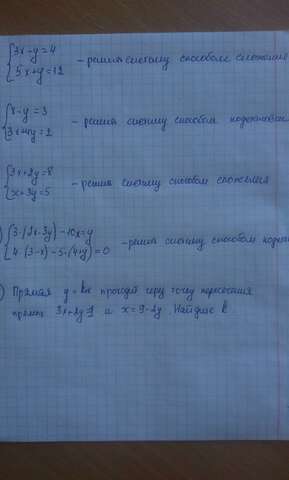 3x-y=4
5x+y=12 - решить систему способом сложения
x-y=3
3x+4y=2 - решить систему способом подстановки
3x+2y=8
x+3y=5 - решить систему способом сложения
) 3·(2x-3y)-10x=y
4·(3-x)-5·(4+y)=0 - решить систему способом
) Прямая y=kx проходит через точку пересечения
прямых 3x+2y= и x=9-2y. Найдите k